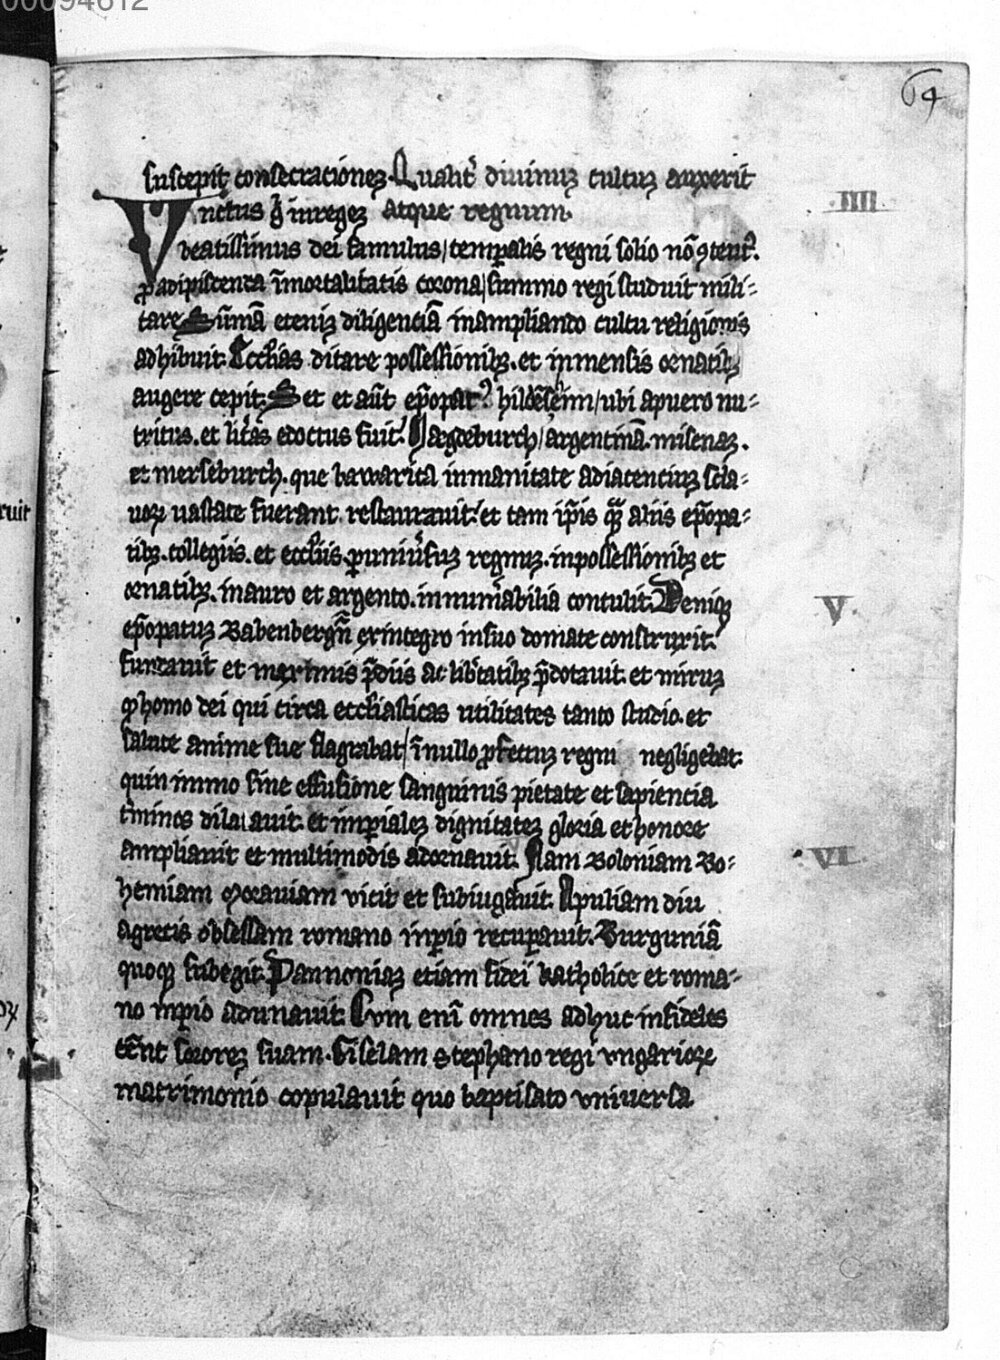 00094612
64
suscepit consecracionez. Qualit᷑ diuinuz cultuz auxerit
IIII
Vnctus g̊ inregez atque regnum.
beatissimus dei famulus / temp̲alis regni solio nō ꝯtent⁹.
ꝓ adipiscenda īmortalitatis corona / summo regi studuit mili-
tare. Sūmā eteniz diligenciā inampliando cultu religionis
adhibuit. Eccl̄ias ditare possessionibꝫ. et inmensis ornatibꝫ
augere cepit. Set et aūt ep̄opat⁹ hildēsheim / ubi apuero nu-
tritus. et litt̄as edoctus fuit. Magdeburch / argentinā. misenaz.
et merseburch. que barbarica inmanitate adiacenciuz scla-
uoꝝ uastate fuerant. restaurauit. et tam ip̄is qͣꝫ aliis ep̄opa-
tibꝫ. collegiis. et eccl̄iis. ꝑ uniu᷑suz regnuz. inpossessionibꝫ et
ornatibꝫ. inauro et argento. innum᷑abilia contulit. Deniqꝫ
V
ep̄opatuz Babenbergn̄ exintegro insuo domate construxit.
fundauit et maximis p̄diis ac lib᷑tatibꝫ p̄dotauit. et miruz
ꝙ homo dei qui circa eccl̄iasticas utilitates tanto studio. et
salute anime sue flagrabat / ī nullo ꝓfectuz regni negligebat.
quin immo sine effusione sanguinis pietate et sapiencia
t᷑minos dilatauit. et imꝑialez dignitatez gloria et honore
ampliauit et multimodis adornauit. Nam Boloniam Bo-
VI
hemiam Morauiam vicit et subiugauit. Apuliam diu
agrecis obsessam romano inꝑio recuꝑauit. Burguniā
quoqꝫ subegit. Pannoniaz etiam fidei katholice et roma-
no inꝑio adunauit. Cvm enī omnes adhuc infideles
eēnt sororez suam. Giselam Stephano regi vngarioꝝ
matrimonio copulauit quo baptisato vniuersa